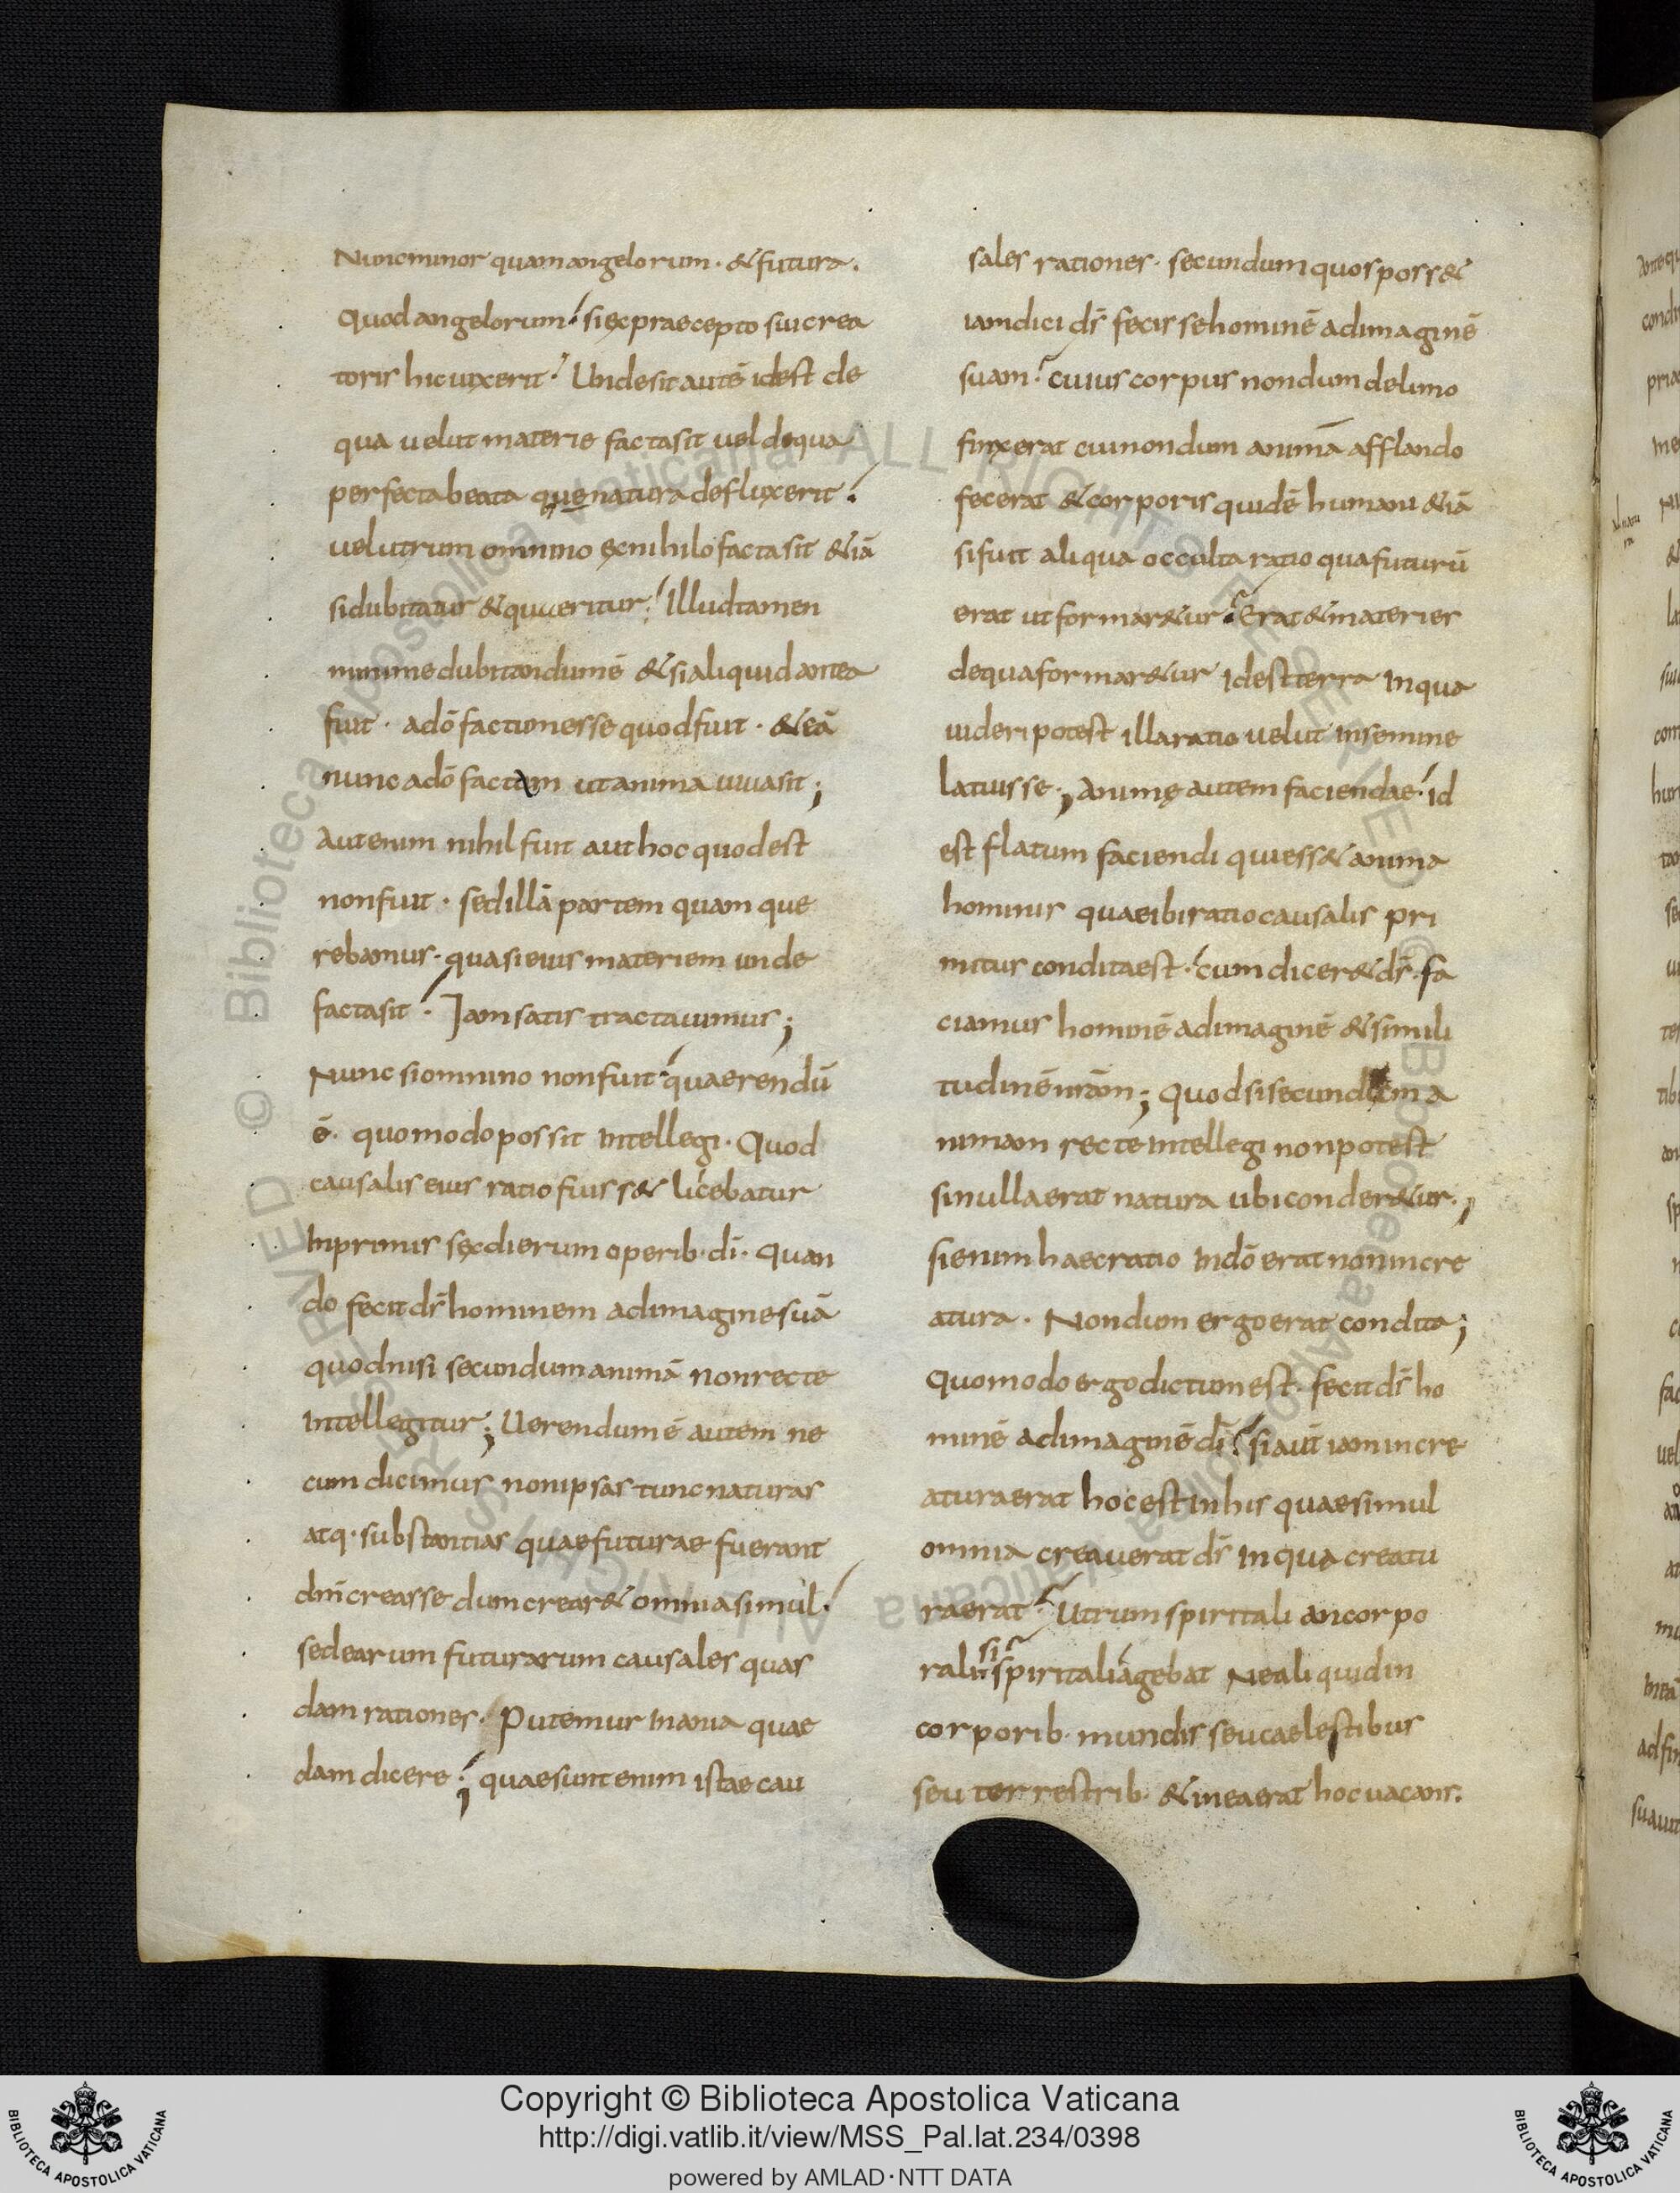 Nunc minor quam angelorum · & futura ·
quod angelorum · si ex praecepto sui crea
toris hic uixerit · Unde sit autē id est de
qua uelut materie facta sit uel dequa
perfecta beata que natura defluxerit ·
uel utrum omnino ex nihilo facta sit & iā
si dubitatur & quaeritur · Illud tamen
minime dubitandum ē & si aliquid antea
fuit · a dō factum esse quod fuit · & eā
nunc a dō factam ut anima uiua sit ;
Aut enim nihil fuit aut hoc quod est
non fuit · sed illā partem quam que
rebamus · quasi eius materiem unde
facta sit · Iam satis tractauimus ;
Nunc si omnino non fuit · quaerendū
ē · quomodo possit intellegi · Quod
causalis eius ratio fuiss& dicebatur
In primis sex dierum operib · dī · Quan
do fecit dr̄ hominem ad imagine suā
quod nisi secundum animā non recte
Intellegitur ; Uerendum ē autem ne
cum dicimus non ipsas tunc naturas
atq · substantias quae futurae fuerant
dm̄ creasse dum crear& omnia simul ·
sed earum futurarum causales quas
dam rationes · Putemur inania quae
dam dicere ; quae sunt enim istae cau
sales rationes · secundum quos poss&
iam dici ds̄ fecisse hominē ad imaginē
suam · cuius corpus nondum de limo
finxerat cui nondum animā afflando
fecerat & corporis quidē humani & iā
si fuit aliqua occulta ratio qua futurū
erat ut formar&ur · Erat & materies
de qua formar&ur id est terra In qua
uideri potest illa ratio uelut in semine
latuisse ; Animę autem faciendae · id
est flatum faciendi qui ess& anima
hominis quae ibi ratio causalis pri
mitus condita est · cum dicer& ds̄ · fa
ciamus hominē ad imaginē & simili
tudinē nr̄am ; Quod si secundum a
nimam recte intellegi non potest
si nulla erat natura ubi conder&ur ·;
si enim haec ratio In dō erat non in cre
atura · Nondum ergo erat condita ;
Quomodo ergo dictum est · fecit ds̄ ho
minē ad imaginē dī · si aut̄ iam in cre
atura erat hoc est in his quae simul
omnia creauerat ds̄ In qua creatu
ra erat · Utrum spiritali an corpo
rali · si spiritali agebat Ne aliquid in
corporib · mundis seu caelestibus
seu terrestrib · & in ea erat hoc uacans ·
Copyright © Biblioteca Apostolica Vaticana
http://digi.vatlib.it/view/MSS_Pal.lat.234/0398
powered by AMLAD·NTT DATA
BIBLIOTECA APOSTOLICA VATICANA
BIBLIOTECA APOSTOLICA VATICANA